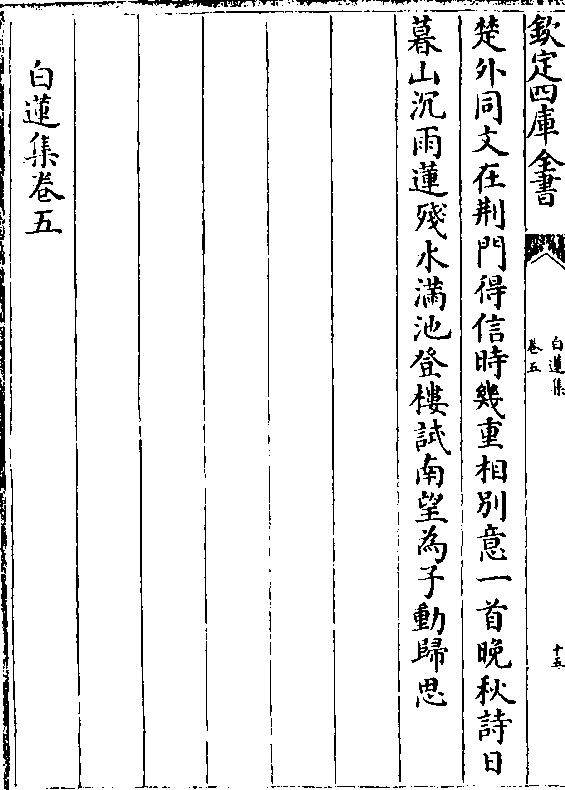 欽定四庫全書
白蓮集
卷五
十五
楚外同文在荆門得信時幾重相别意一首晚秋詩日
暮山沉雨蓮殘水滿池登樓試南望為子動歸思
白蓮集卷五